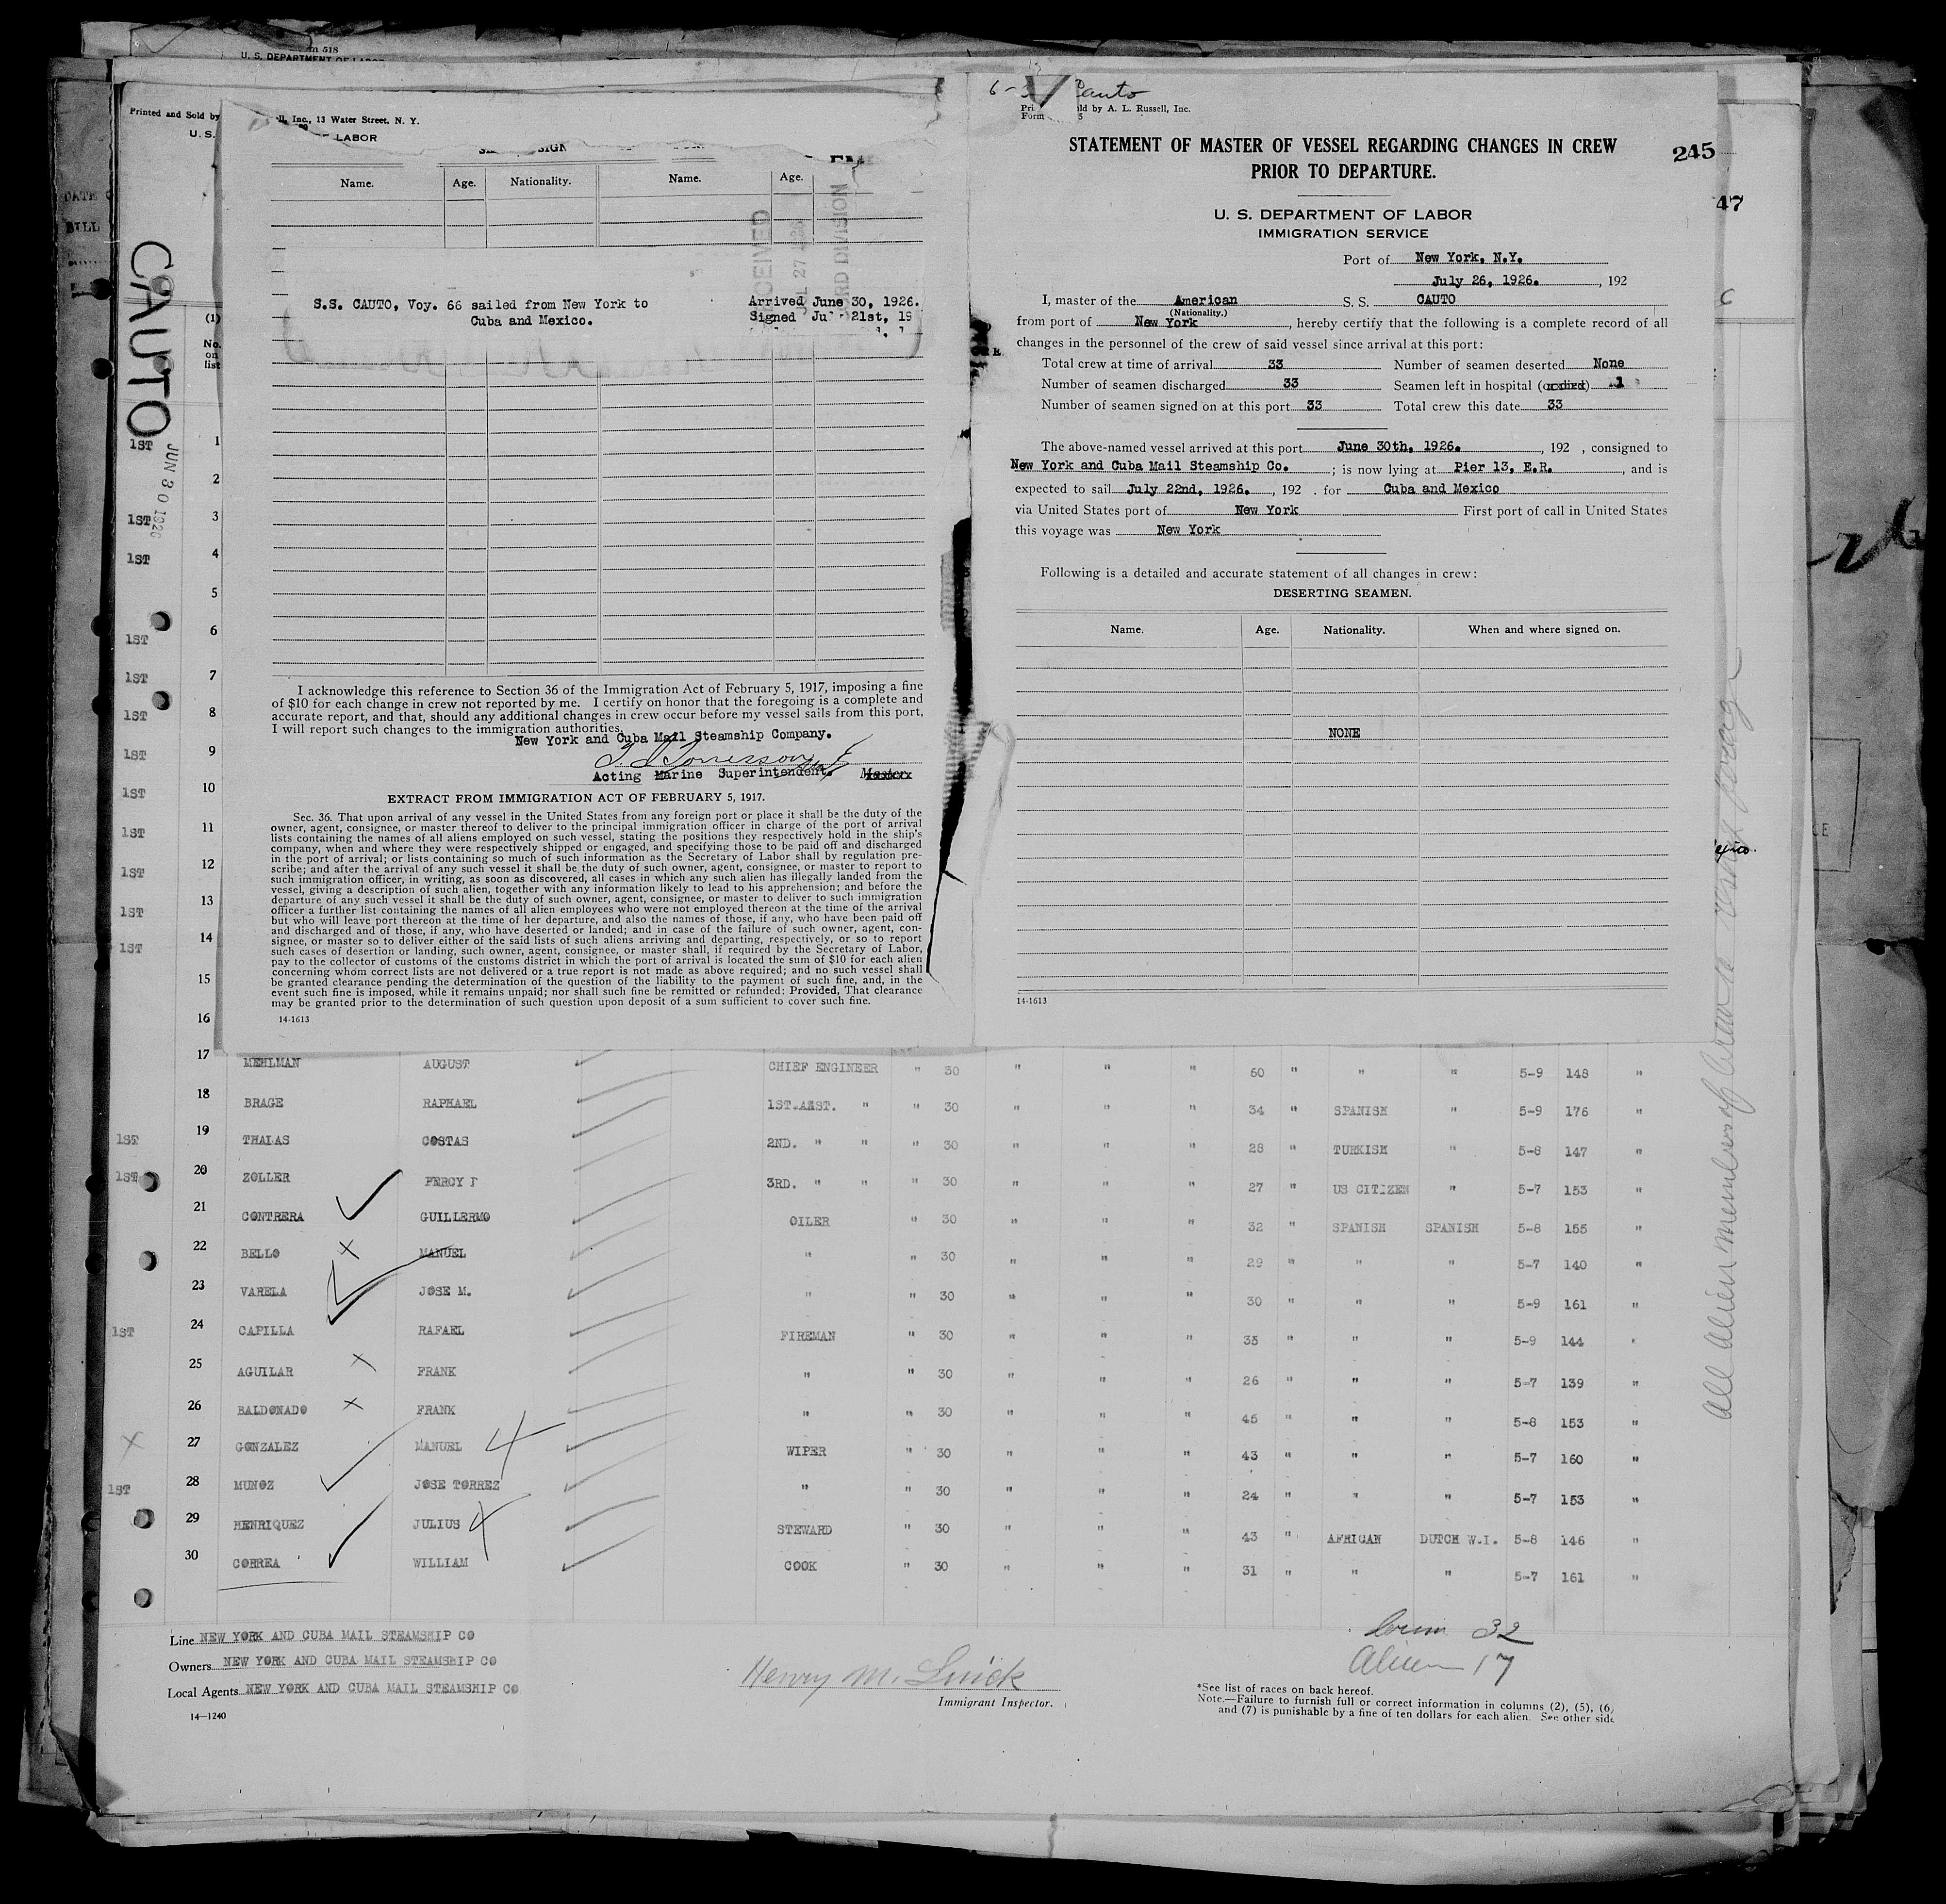 m 518
U. S. DEPARTMENT OF LABOR
Printed and Sold by
ll, Inc., 13 Water Street, N. Y.
U. S.
LABOR
DATE
BILL
CAUTO
JUN 30 1926
(1)
No.
on
list
Name. Age. Nationality. Name. Age.
RECEIVED
JUL 27 1926
RECORD DIVISION
S.S. CAUTO, Voy. 66 sailed from New York to Arrived June 30, 1926.
Cuba and Mexico. Signed July 21st, 19
I acknowledge this reference to Section 36 of the Immigration Act of February 5, 1917, imposing a fine
of $10 for each change in crew not reported by me. I certify on honor that the foregoing is a complete and
accurate report, and that, should any additional changes in crew occur before my vessel sails from this port,
I will report such changes to the immigration authorities.
New York and Cuba Mail Steamship Company.
Acting Marine Superintendent. Master
EXTRACT FROM IMMIGRATION ACT OF FEBRUARY 5, 1917.
Sec. 36. That upon arrival of any vessel in the United States from any foreign port or place it shall be the duty of the
owner, agent, consignee, or master thereof to deliver to the principal immigration officer in charge of the port of arrival
lists containing the names of all aliens employed on such vessel, stating the positions they respectively hold in the ship's
company, when and where they were respectively shipped or engaged, and specifying those to be paid off and discharged
in the port of arrival; or lists containing so much of such information as the Secretary of Labor shall by regulation pre-
scribe; and after the arrival of any such vessel it shall be the duty of such owner, agent, consignee, or master to report to
such immigration officer, in writing, as soon as discovered, all cases in which any such alien has illegally landed from the
vessel, giving a description of such alien, together with any information likely to lead to his apprehension; and before the
departure of any such vessel it shall be the duty of such owner, agent, consignee, or master to deliver to such immigration
officer a further list containing the names of all alien employees who were not employed thereon at the time of the arrival
but who will leave port thereon at the time of her departure, and also the names of those, if any, who have been paid off
and discharged and of those, if any, who have deserted or landed; and in case of the failure of such owner, agent, con-
signee, or master so to deliver either of the said lists of such aliens arriving and departing, respectively, or so to report
such cases of desertion or landing, such owner, agent, consignee, or master shall, if required by the Secretary of Labor,
pay to the collector of customs of the customs district in which the port of arrival is located the sum of $10 for each alien
concerning whom correct lists are not delivered or a true report is not made as above required; and no such vessel shall
be granted clearance pending the determination of the question of the liability to the payment of such fine, and, in the
event such fine is imposed, while it remains unpaid; nor shall such fine be remitted or refunded: Provided, That clearance
may be granted prior to the determination of such question upon deposit of a sum sufficient to cover such fine.
14-1613
Cauto
ld by A. L. Russell, Inc.
Form
STATEMENT OF MASTER OF VESSEL REGARDING CHANGES IN CREW
PRIOR TO DEPARTURE.
245
47
U. S. DEPARTMENT OF LABOR
IMMIGRATION SERVICE
Port of New York, N.Y.
July 26, 1926. , 192
I, master of the American S. S. CAUTO
(Nationality.)
from port of New York , hereby certify that the following is a complete record of all
changes in the personnel of the crew of said vessel since arrival at this port:
Total crew at time of arrival 33 Number of seamen deserted None
Number of seamen discharged 33 Seamen left in hospital 1
Number of seamen signed on at this port 33 Total crew this date 33
The above-named vessel arrived at this port June 30th, 1926. , 192 , consigned to
New York and Cuba Mail Steamship Co. ; is now lying at Pier 13, E.R. , and is
expected to sail July 22nd, 1926. , 192 . for Cuba and Mexico
via United States port of New York First port of call in United States
this voyage was New York
Following is a detailed and accurate statement of all changes in crew:
DESERTING SEAMEN.
Name. Age. Nationality. When and where signed on.
NONE
14-1613
1ST 1
2
1ST 3
1ST 4
5
1ST 6
1ST 7
1ST 8
1ST 9
1ST 10
1ST 11
1ST 12
1ST 13
1ST 14
15
16
17 MEHLMAN AUGUST CHIEF ENGINEER " 30 " " " 60 " " " 5-9 148 "
18 BRAGE RAPHAEL 1ST.ASST. " " 30 " " " 34 " SPANISH " 5-9 176 "
1ST 19 THALAS COSTAS 2ND. " " " 30 " " " 28 " TURKISH " 5-8 147 "
1ST 20 ZOLLER PERCY 3RD. " " " 30 " " " 27 " US CITIZEN " 5-7 153 "
21 CONTRERA GUILLERMO OILER " 30 " " " 32 " SPANISH SPANISH 5-8 155 "
22 BELLO X MANUEL " " 30 " " " 29 " " " 5-7 140 "
23 VARELA JOSE M. " " 30 " " " 30 " " " 5-9 161 "
1ST 24 CAPILLA RAFAEL FIREMAN " 30 " " " 35 " " " 5-9 144 "
25 AGUILAR X FRANK " " 30 " " " 26 " " " 5-7 139 "
26 BALDONADO X FRANK " " 30 " " " 45 " " " 5-8 153 "
X 27 GONZALEZ MANUEL WIPER " 30 " " " 43 " " " 5-7 160 "
1ST 28 MUNOZ JOSE TORREZ " " 30 " " " 24 " " " 5-7 153 "
29 HENRIQUEZ JULIUS STEWARD " 30 " " " 43 " AFRICAN DUTCH W.I. 5-8 146 "
30 CORREA WILLIAM COOK " 30 " " " 31 " " " 5-7 161 "
Line NEW YORK AND CUBA MAIL STEAMSHIP CO
Owners NEW YORK AND CUBA MAIL STEAMSHIP CO
Local Agents NEW YORK AND CUBA MAIL STEAMSHIP CO
14-1240
Henry M.
Immigrant Inspector.
32
Alien 17
*See list of races on back hereof.
Note.—Failure to furnish full or correct information in columns (2), (5), (6)
and (7) is punishable by a fine of ten dollars for each alien. See other side
All alien members of crew